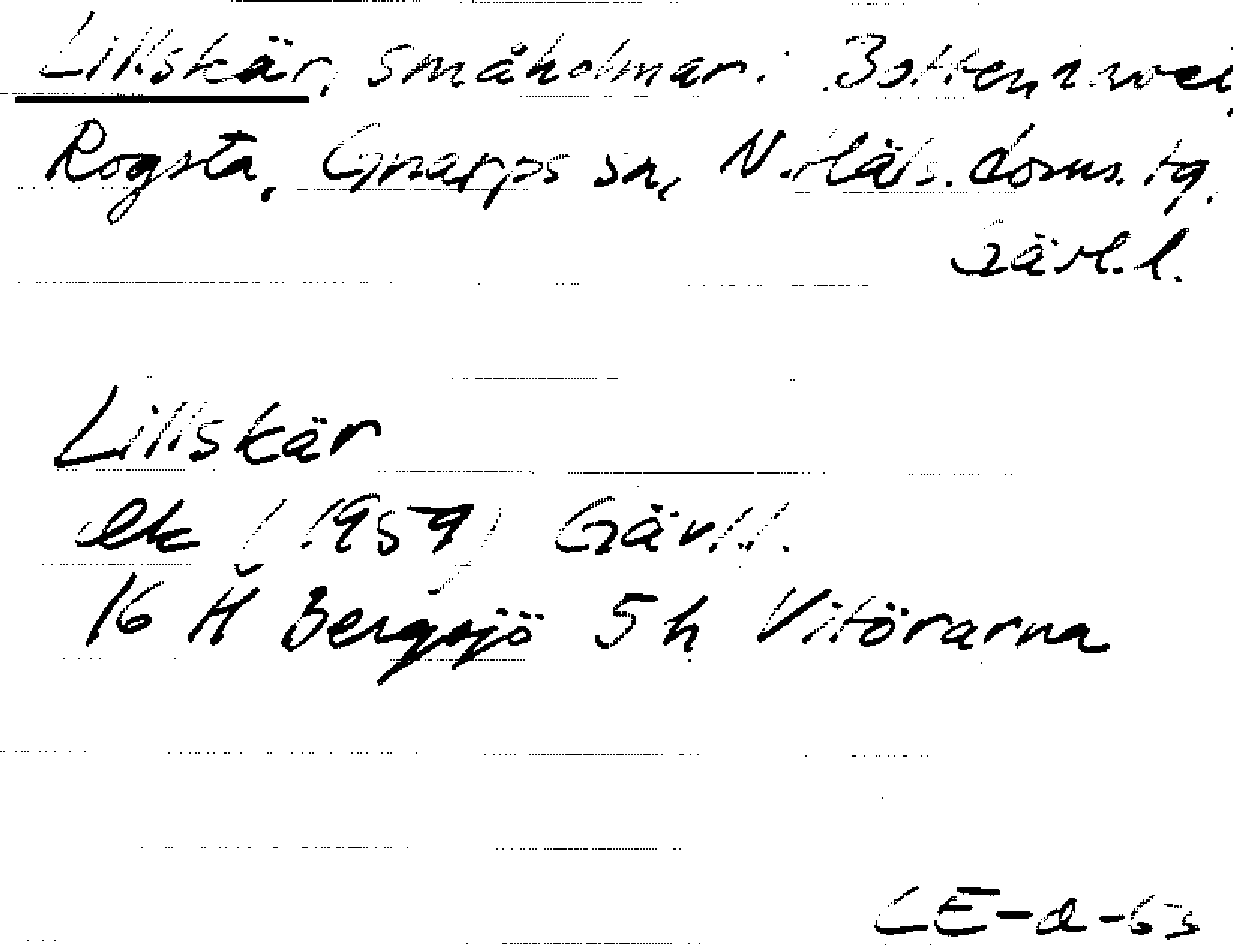 Lillskär, småholmar i Bottenhavet,
Rogsta, Gnarps sn, N. Häls. doms. tg.
Gävl.l.
Lillskär
ek (1959) Gävl.l.
16 H Bergsjö 5 h Vitörarna
CE-a-63